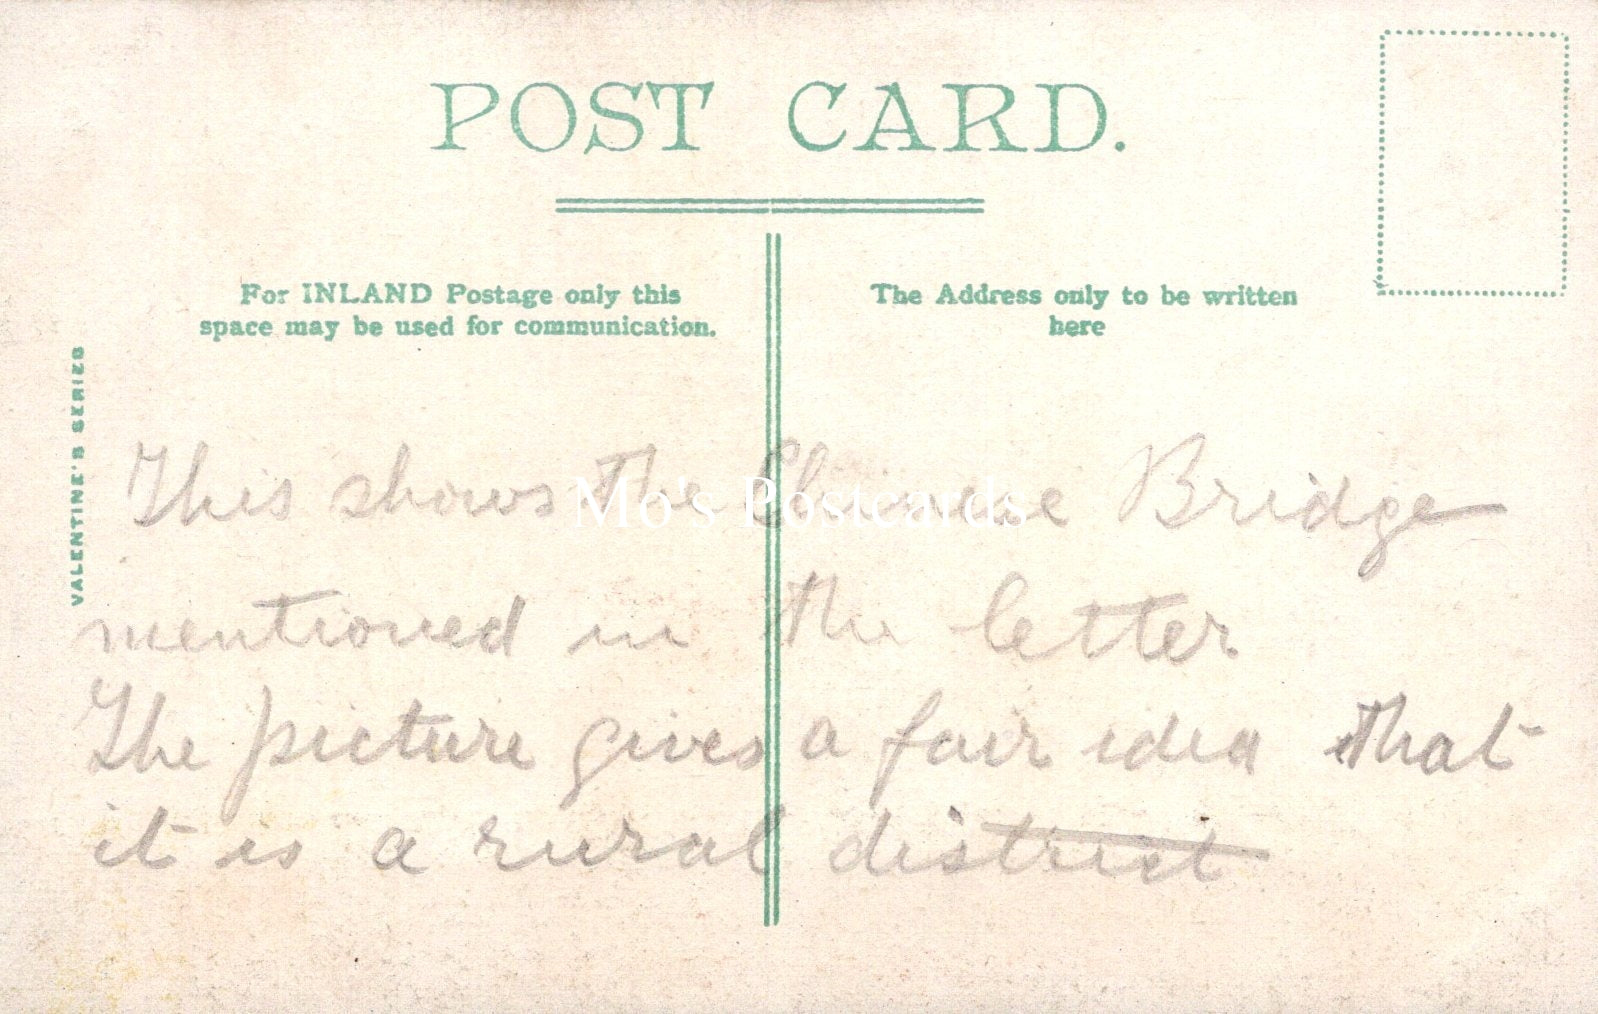 POST CARD.
For INLAND Postage only this
space may be used for communication.
The Address only to be written
here
VALENTINE'S SERIES
This shows the Chinese Bridge
mentioned in the letter.
The picture gives a fair idea that
it is a rural district
Mo's Postcards